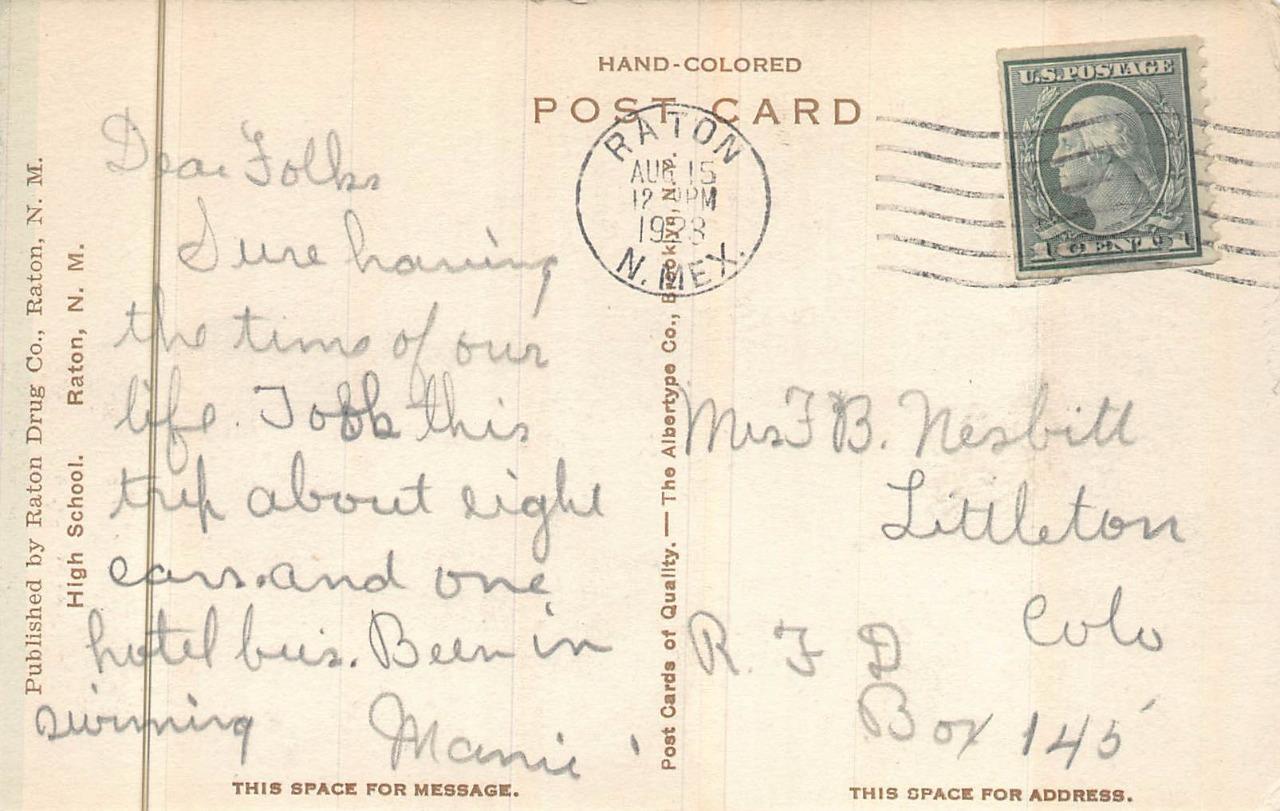 HAND-COLORED
POST CARD
U.S. POSTAGE
1 CENT 1
RATON
AUG 15
12 PM
N. MEX.
Published by Raton Drug Co., Raton, N. M.
High School. Raton, N. M.
Post Cards of Quality. — The Albertype Co., Brooklyn, N. Y.
Dear Folks
Sure having
the time of our
life. Took this
trip about eight
cars. and one
hotel bus. Been in
swimming
Mamie
Mrs F B. Nesbitt
Littleton
Colo
R. F D
Box 145
THIS SPACE FOR MESSAGE.
THIS SPACE FOR ADDRESS.